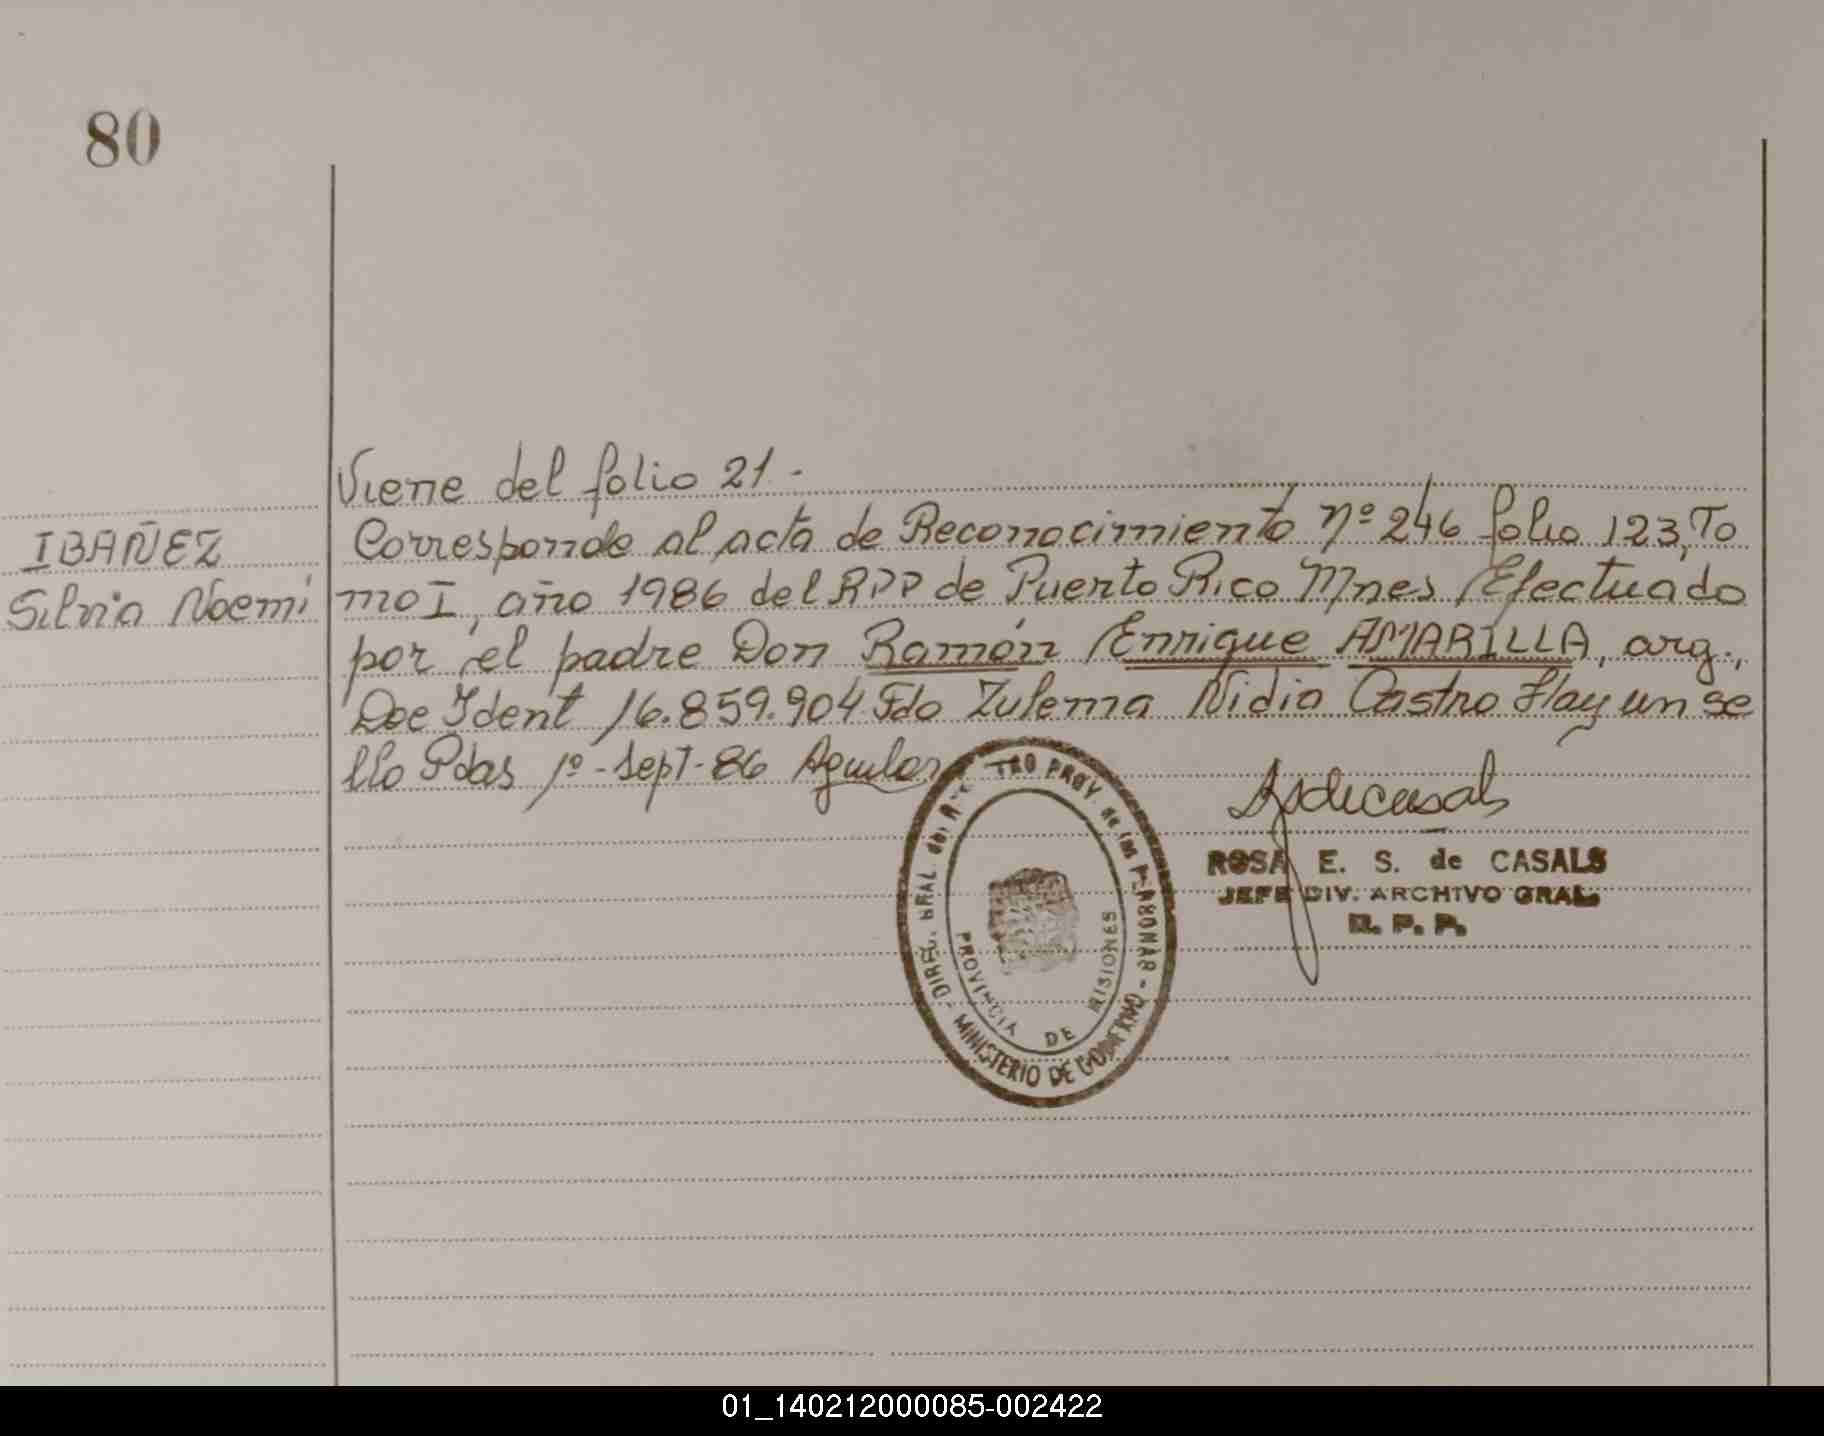 80
Viene del folio 21.-
IBAÑEZ
Silvia Noemi
Corresponde al acta de Reconocimiento nº 246 folio 123, To
mo I, año 1986 del RPP de Puerto Rico Mnes Efectuado
por el padre Don Ramón Enrique AMARILLA, arg.,
Doc Ident 16.859.904 Fdo Zulema Nidia Castro Hay un se
llo Pdas 1º-Sept-86 Aguilar
DIREC. GRAL. del PROV. de las PERSONAS
- MINISTERIO DE GOBIERNO -
PROVINCIA DE MISIONES
ROSA E. S. de CASALS
JEFE DIV. ARCHIVO GRAL.
R. P. P.
01_140212000085-002422